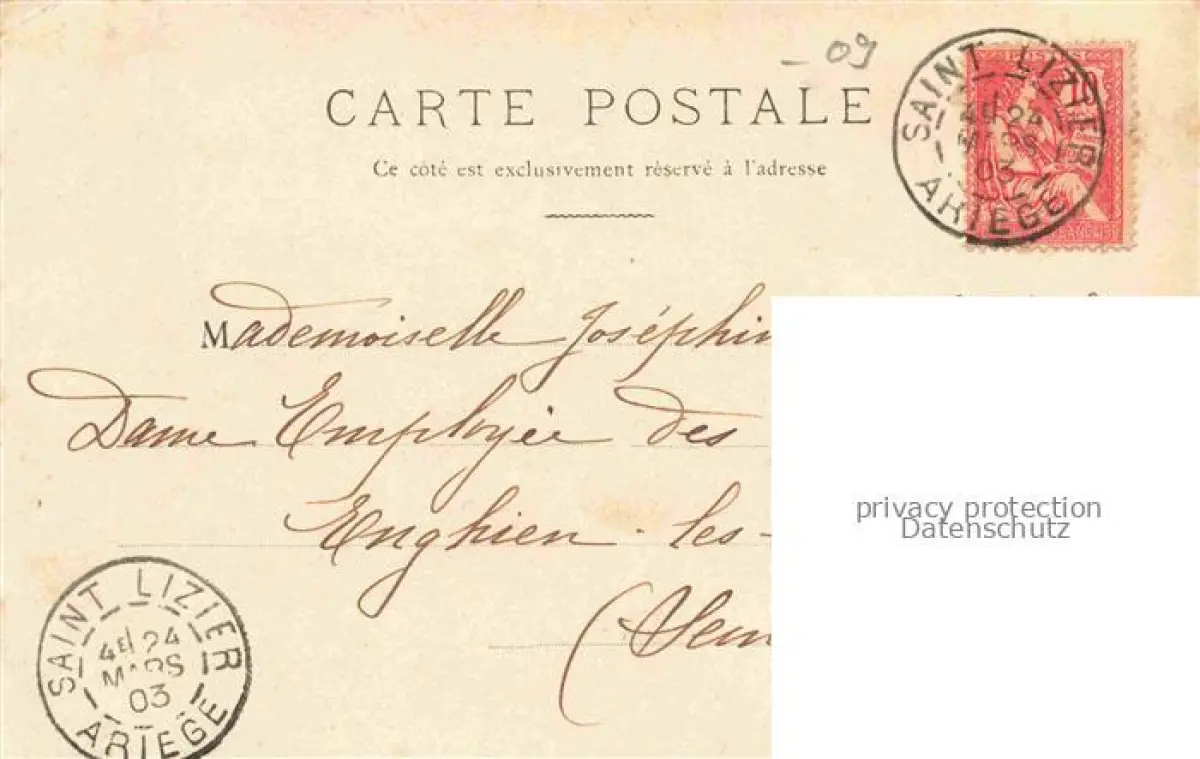 - 09
CARTE POSTALE
Ce côté est exclusivement réservé à l'adresse
SAINT LIZIER
4E 24
MARS
03
ARIEGE
POSTES
FRANÇAISE
Mademoiselle Joséphin
Dame Employée des
Enghien-les-
(Sein
privacy protection
Datenschutz
SAINT LIZIER
4E 24
MARS
03
ARIEGE